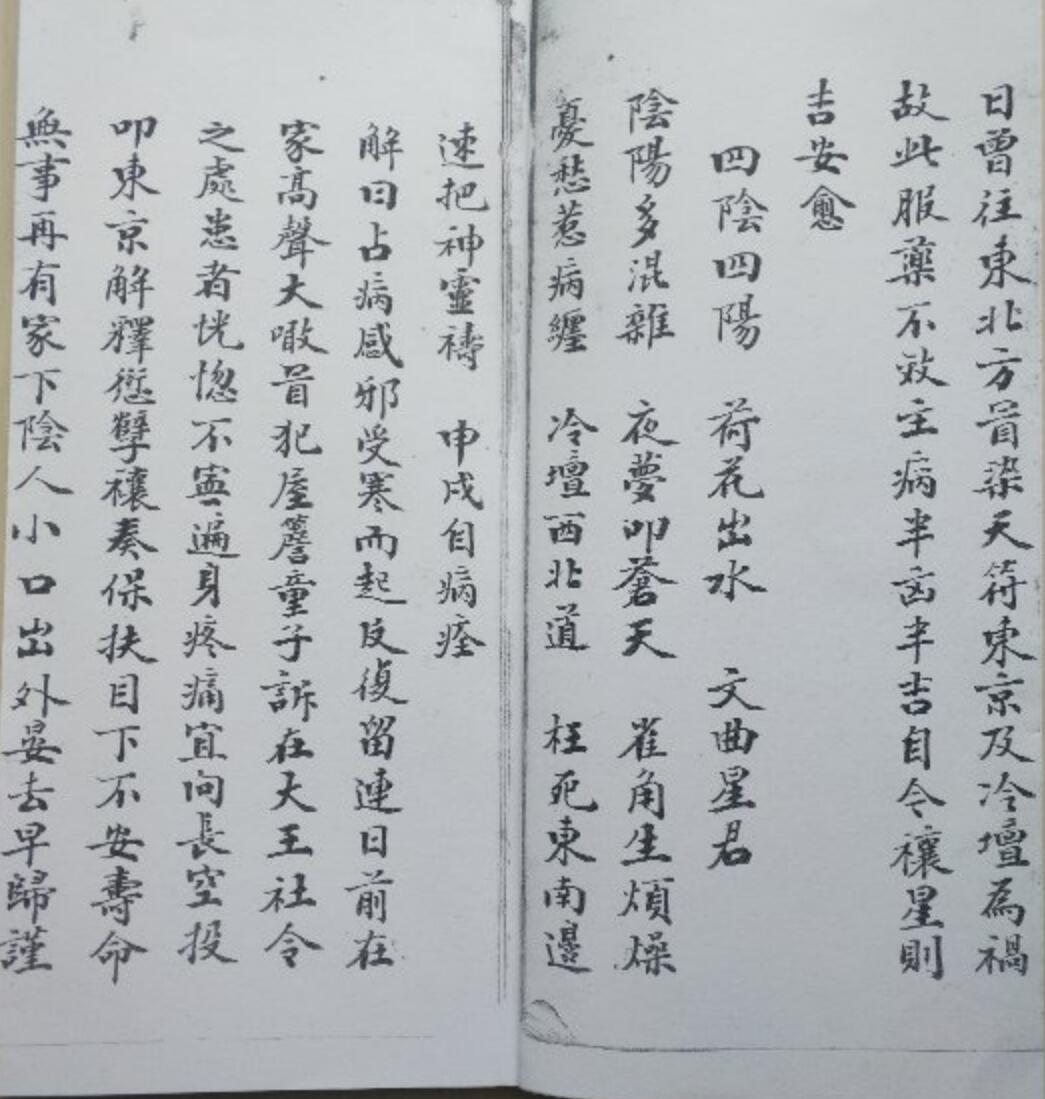 日曾往東北方冒染天符東京及冷壇為禍
故此服藥不效主病半凶半吉自今禳星則
吉安愈
四陰四陽　荷花出水　文曲星君
陰陽多混雜　夜夢叩蒼天　雀角生煩燥
憂愁惹病纏　冷壇西北道　枉死東南邊
速把神靈禱　申戌自病痊
解曰占病感邪受寒而起反復留連日前在
家高聲大噉冒犯屋簷童子訴在大王社令
之處患者恍惚不寧遍身疼痛宜向長空投
叩東京解釋愆孽禳奏保扶目下不安壽命
無事再有家下陰人小口出外晏去早歸謹